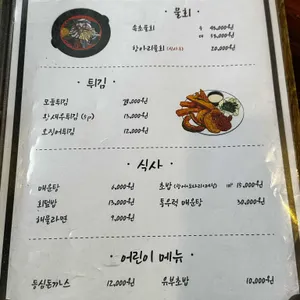 · 물회 ·
속초물회 小 45,000원
大 55,000원
항아리물회 (식사용) 20,000원
· 튀김 ·
모듬튀김 28,000원
왕새우튀김 (5p) 15,000원
오징어튀김 12,000원
· 식사 ·
매운탕 6,000원
회덮밥 15,000원
해물라면 9,000원
초밥 10P 15,000원
통우럭 매운탕 30,000원
· 어린이 메뉴 ·
등심돈까스 12,000원
유부초밥 10,000원